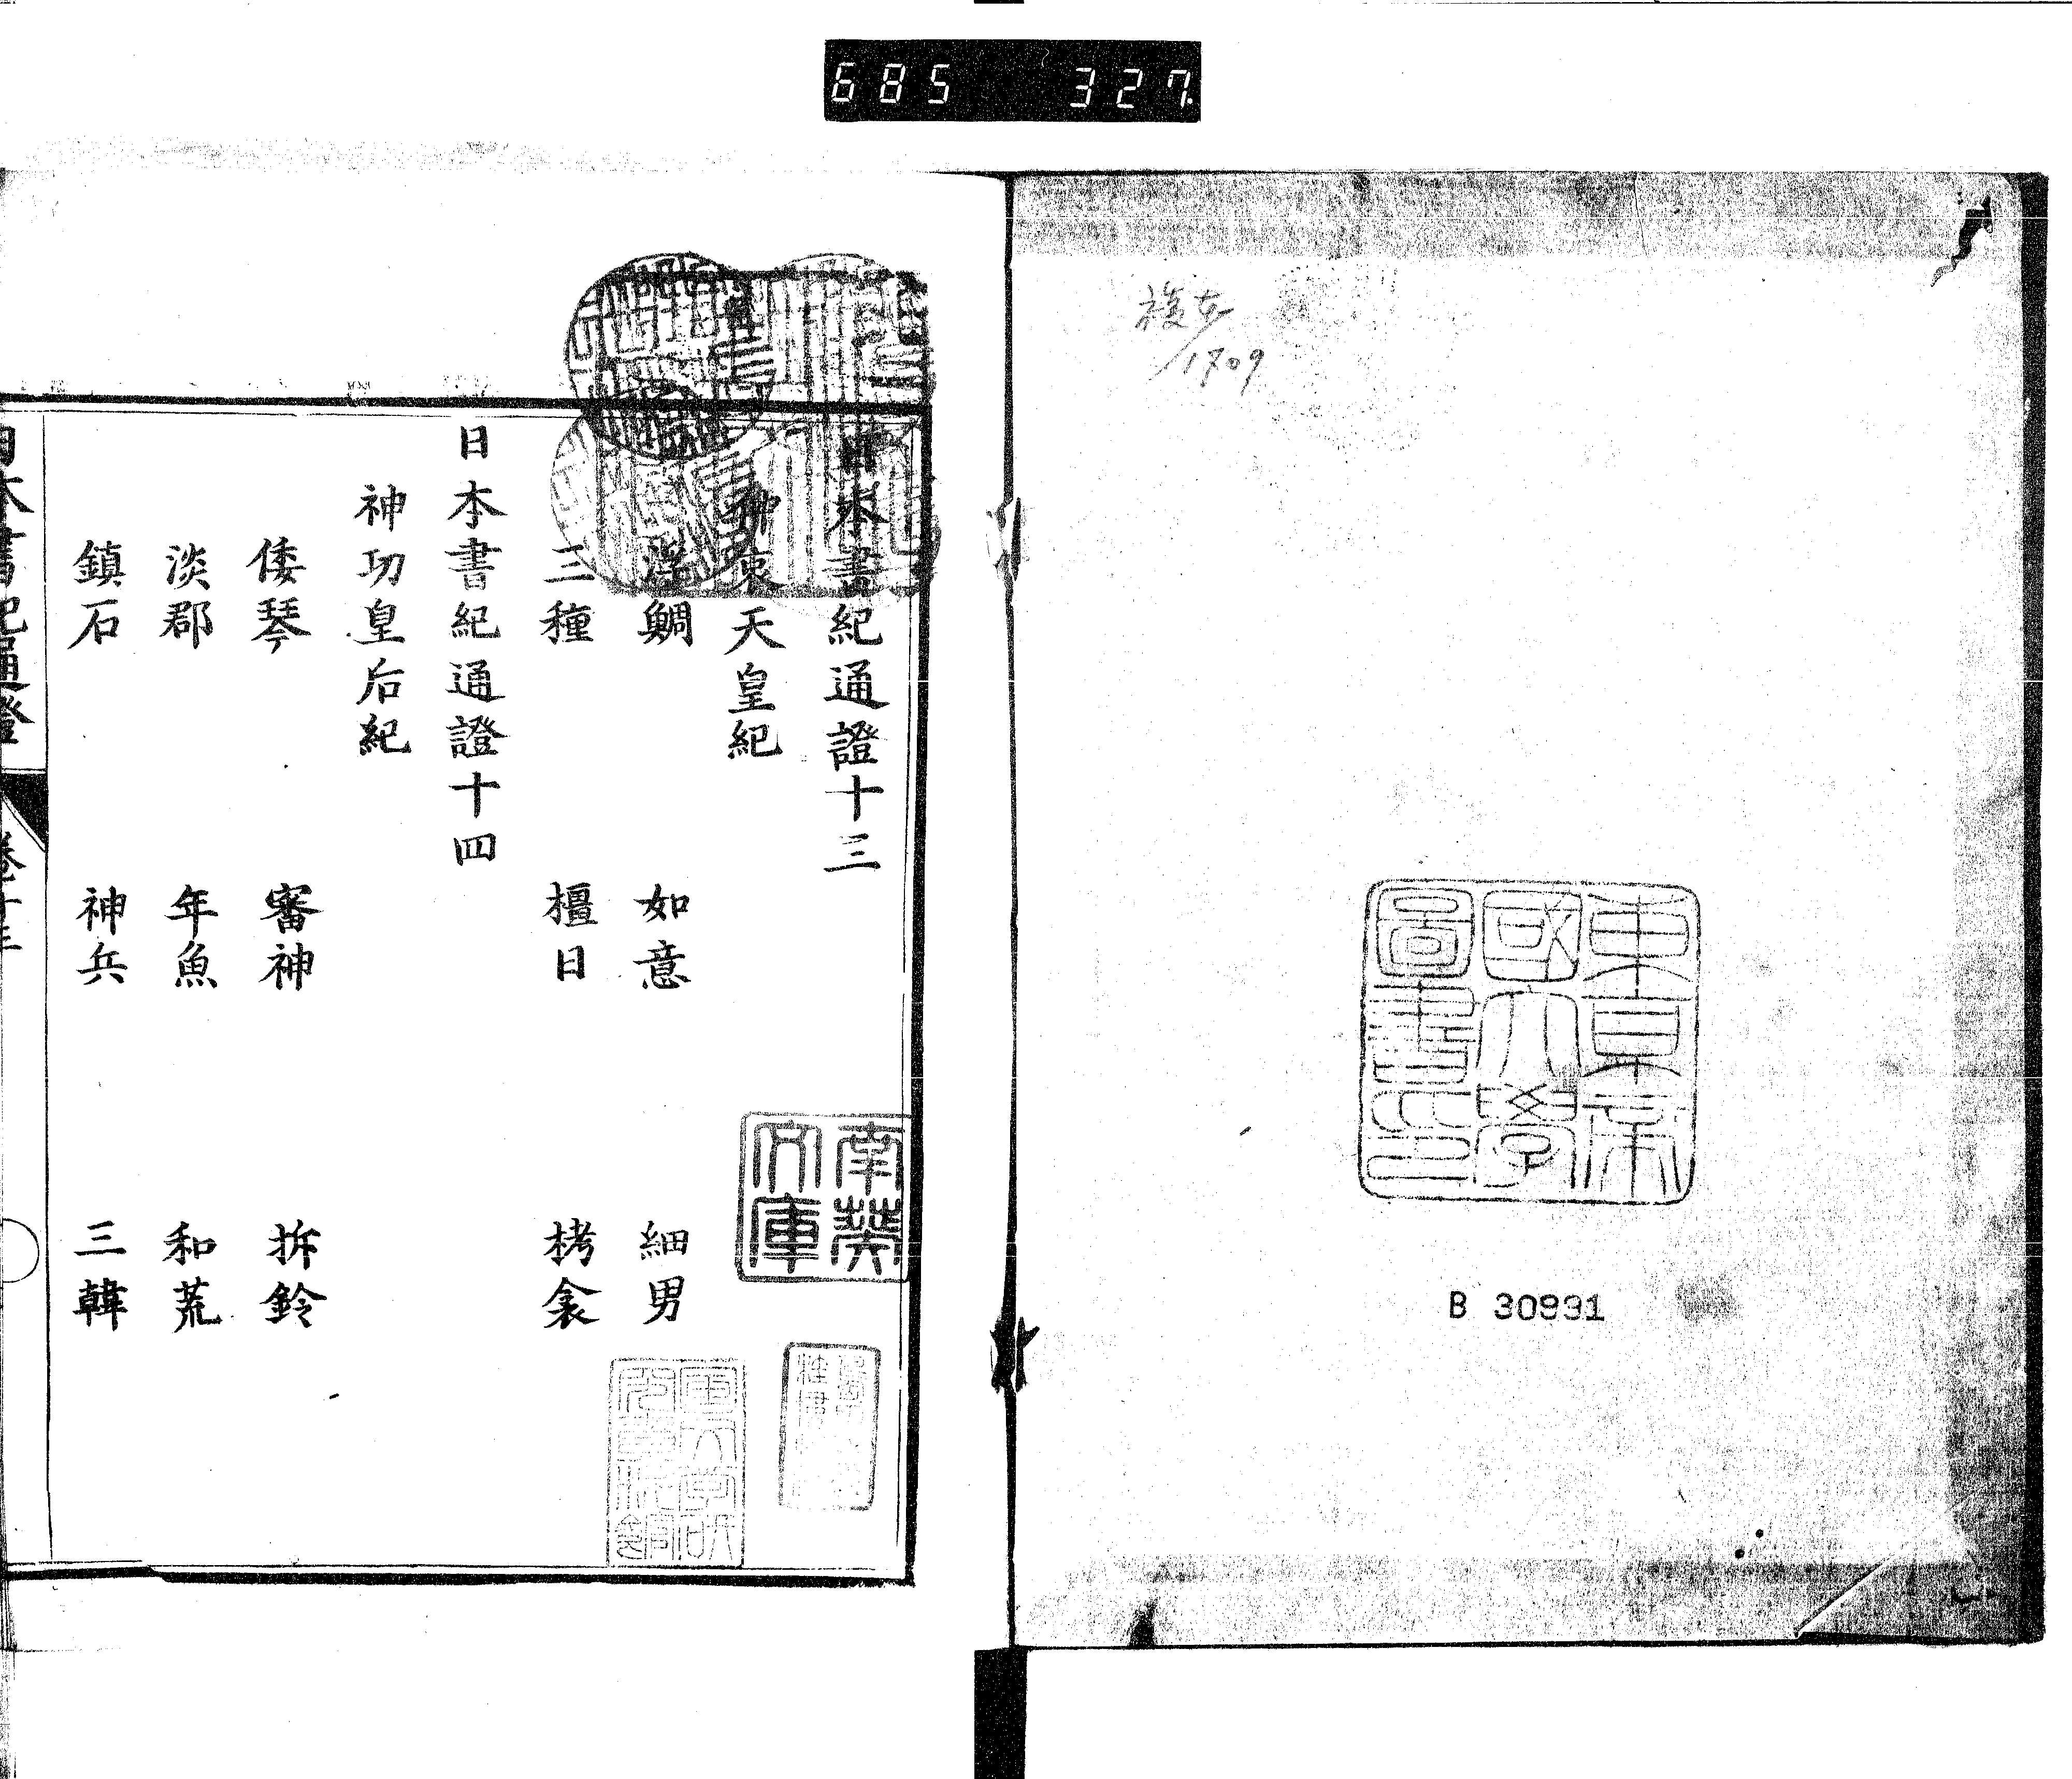 685 327
複女
1709
東京帝
國大學
圖書之印
B 30931
日本書紀通證十三
仲哀天皇紀
浮鯛 如意 細男
三種 橿日 栲衾
日本書紀通證十四
神功皇后紀
倭琴 審神 拆鈴
淡郡 年魚 和荒
鎮石 神兵 三韓
南葵
文庫
日本書紀通證 卷十三